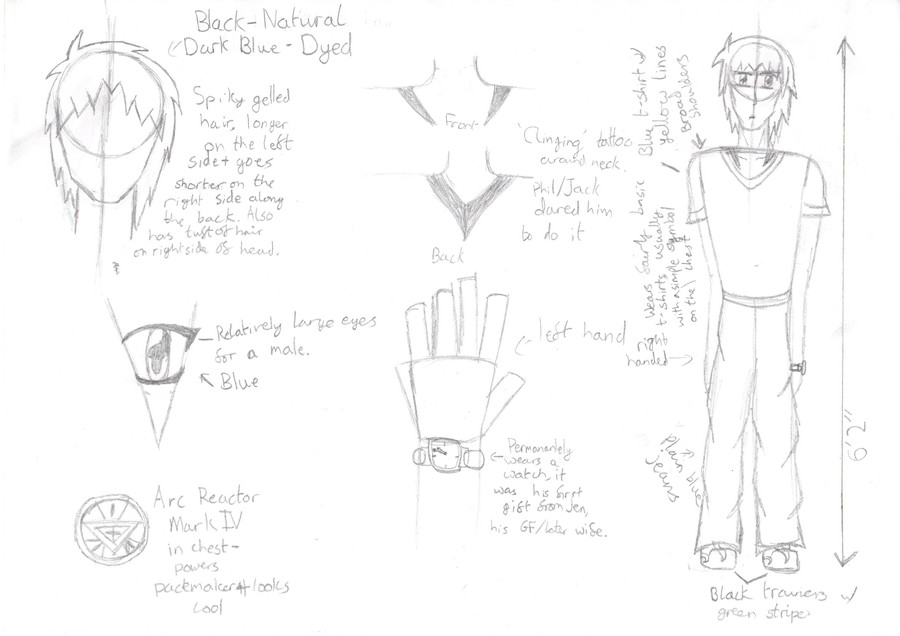 Black-Natural
Dark Blue - Dyed
Spiky gelled
hair, longer
on the left
side + goes
shorter on the
right side along
the back. Also
has tuft of hair
on right side of head.
Front
Back
'Clinging' tattoo
around neck.
Phil/Jack
dared him
to do it
Relatively large eyes
for a male.
Blue
left hand
Permanantely
wears a
watch, it
was his first
gift from Jen,
his GF/later wife.
Arc Reactor
Mark IV
in chest-
powers
pacemaker + looks
cool
Blue t-shirt w/
yellow lines
Broad
shoulders
Wears fairly basic
t-shirts usually
with a simple symbol
on the chest
right
handed
Plain blue
jeans
6'2"
Black trainers w/
green stripe